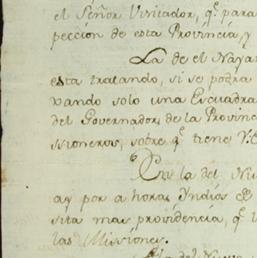 el Señor Visitador, q.e para
peccion de esta Provincia, y
La de el Nayar
esta tratando, si se podra
vando solo una Escuadra
del Governador de la Provinc
ssioneros, sobre q.e tiene V.E
En la del Nu
ay por a hora Indios
sita mas providencia, q.e l
las Missiones.
la del Nuevo